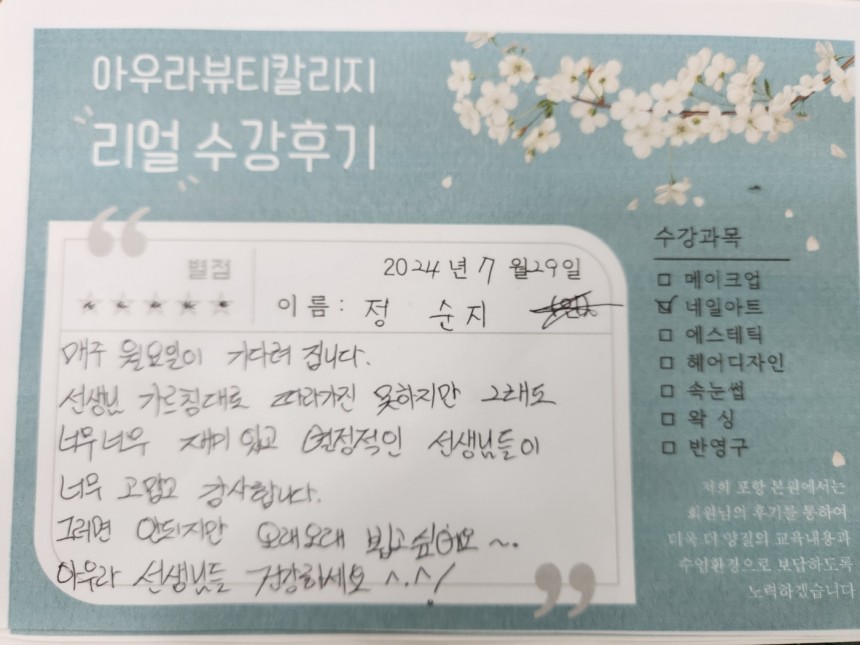 아우라뷰티칼리지
리얼 수강후기
별점
2024년 7월 29일
이름: 정 순지
매주 월요일이 기다려 집니다.
선생님 가르침대로 따라가진 못하지만 그래도
너무너무 재미있고 열정적인 선생님들이
너무 고맙고 감사합니다.
그러면 안되지만 오래오래 뵙고싶어요~.
아우라 선생님들 건강하세요 ^.^/
수강과목
메이크업
네일아트
에스테틱
헤어디자인
속눈썹
왁싱
반영구
저희 포항 본원에서는
회원님의 후기를 통하여
더욱 더 양질의 교육내용과
수업환경으로 보답하도록
노력하겠습니다